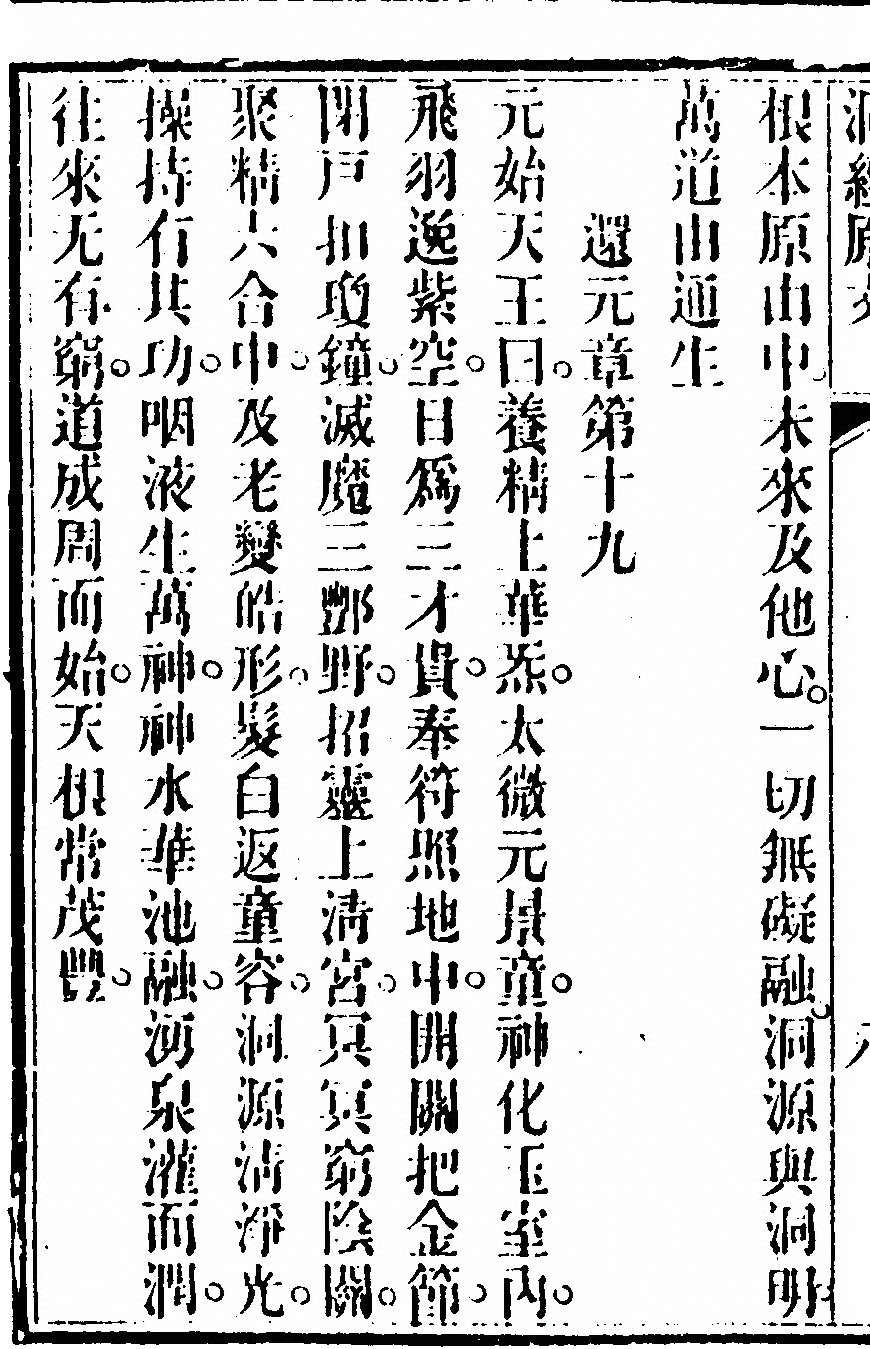 根本原由中未來及他心。一切無礙融。洞源與洞明。
萬道由通生
還元章第十九
元始天王曰。養精上華炁。太微元景童。神化玉室內。
飛羽逸紫空。日爲三才貴。奉符照地中。開關把金節。
閉戸扣瓊鐘。滅魔三酆野。招靈上清宮。冥冥窮陰關。
聚精六合中。及老變皓形。髮白返童容。洞源清淨光。
操持有其功。咽液生萬神。神水華池融。湧泉灌而潤。
往來无有窮。道成周而始。天根常茂豐。